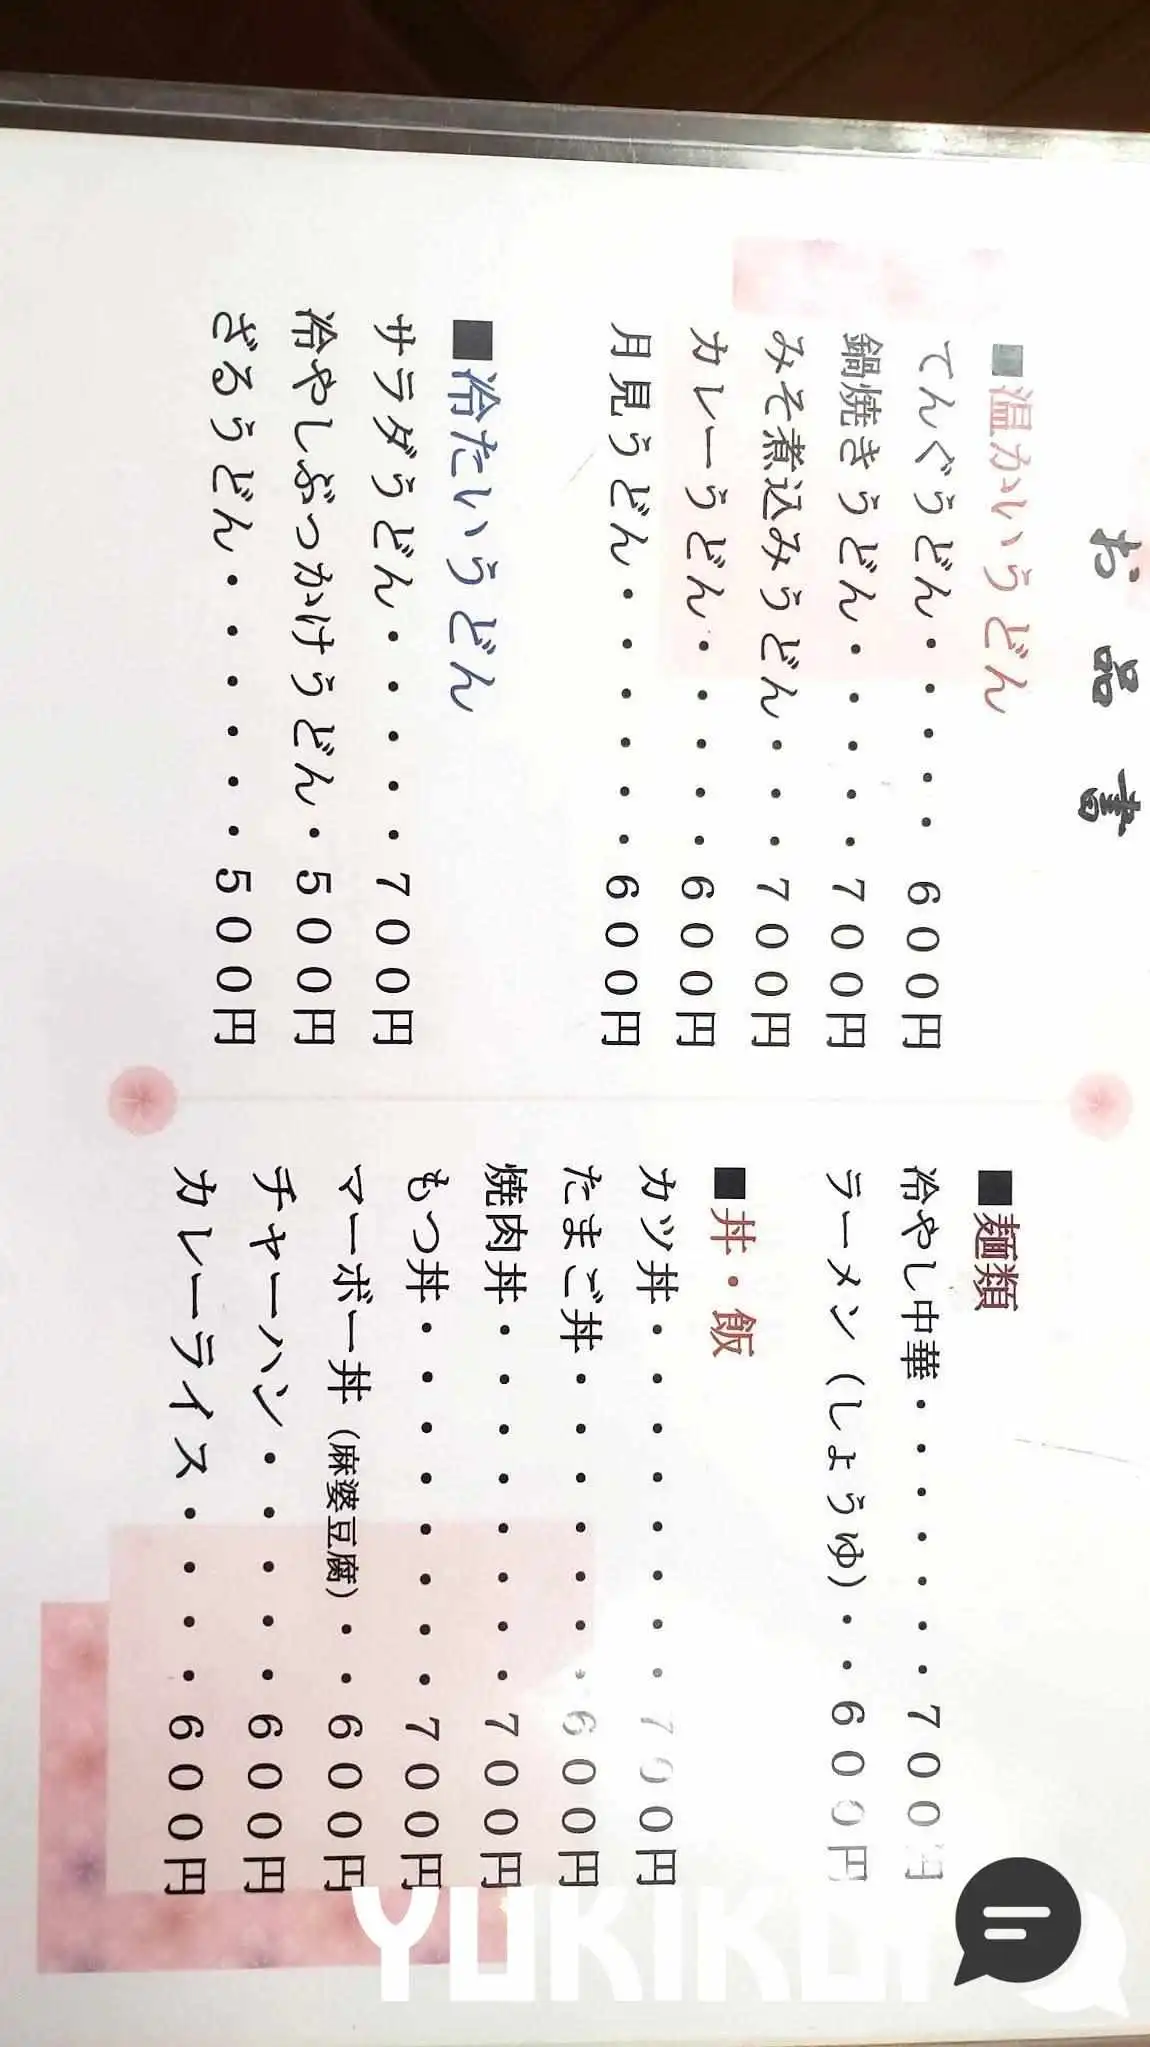 お品書
■温かいうどん
てんぐうどん・・・・・600円
鍋焼きうどん・・・・・700円
みそ煮込みうどん・・・700円
カレーうどん・・・・・600円
月見うどん・・・・・・600円
■冷たいうどん
サラダうどん・・・・・700円
冷やしぶっかけうどん・500円
ざるうどん・・・・・・500円
■麺類
冷やし中華・・・・・・・700円
ラーメン(しょうゆ)・・600円
■丼・飯
カツ丼・・・・・・・・700円
たまご丼・・・・・・・600円
焼肉丼・・・・・・・・700円
もつ丼・・・・・・・・700円
マーボー丼(麻婆豆腐)・・600円
チャーハン・・・・・600円
カレーライス・・・・600円